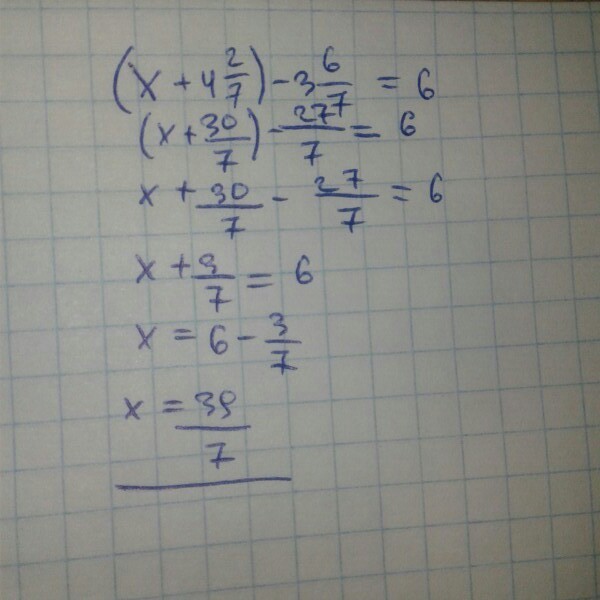 (x + 4 2/7) - 3 6/7 = 6
(x + 30/7) - 27/7 = 6
x + 30/7 - 27/7 = 6
x + 3/7 = 6
x = 6 - 3/7
x = 39/7